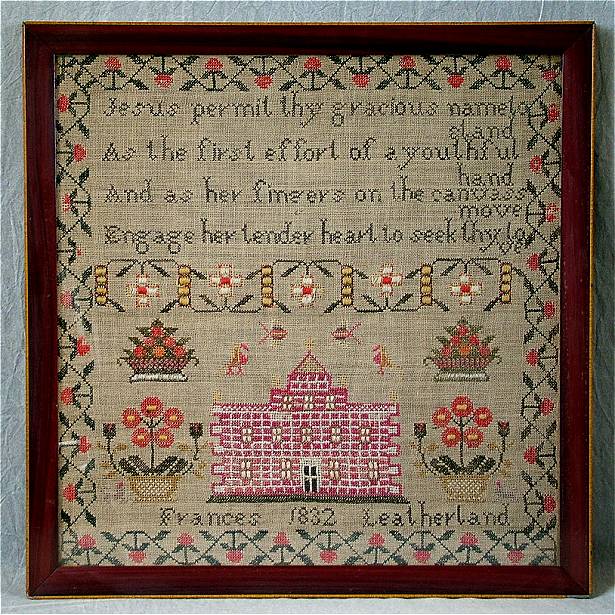 Jesus permit thy gracious name to
stand
As the first effort of a youthful
hand
And as her fingers on the canvass
move
Engage her tender heart to seek thy lo
ve
Frances 1832 Leatherland